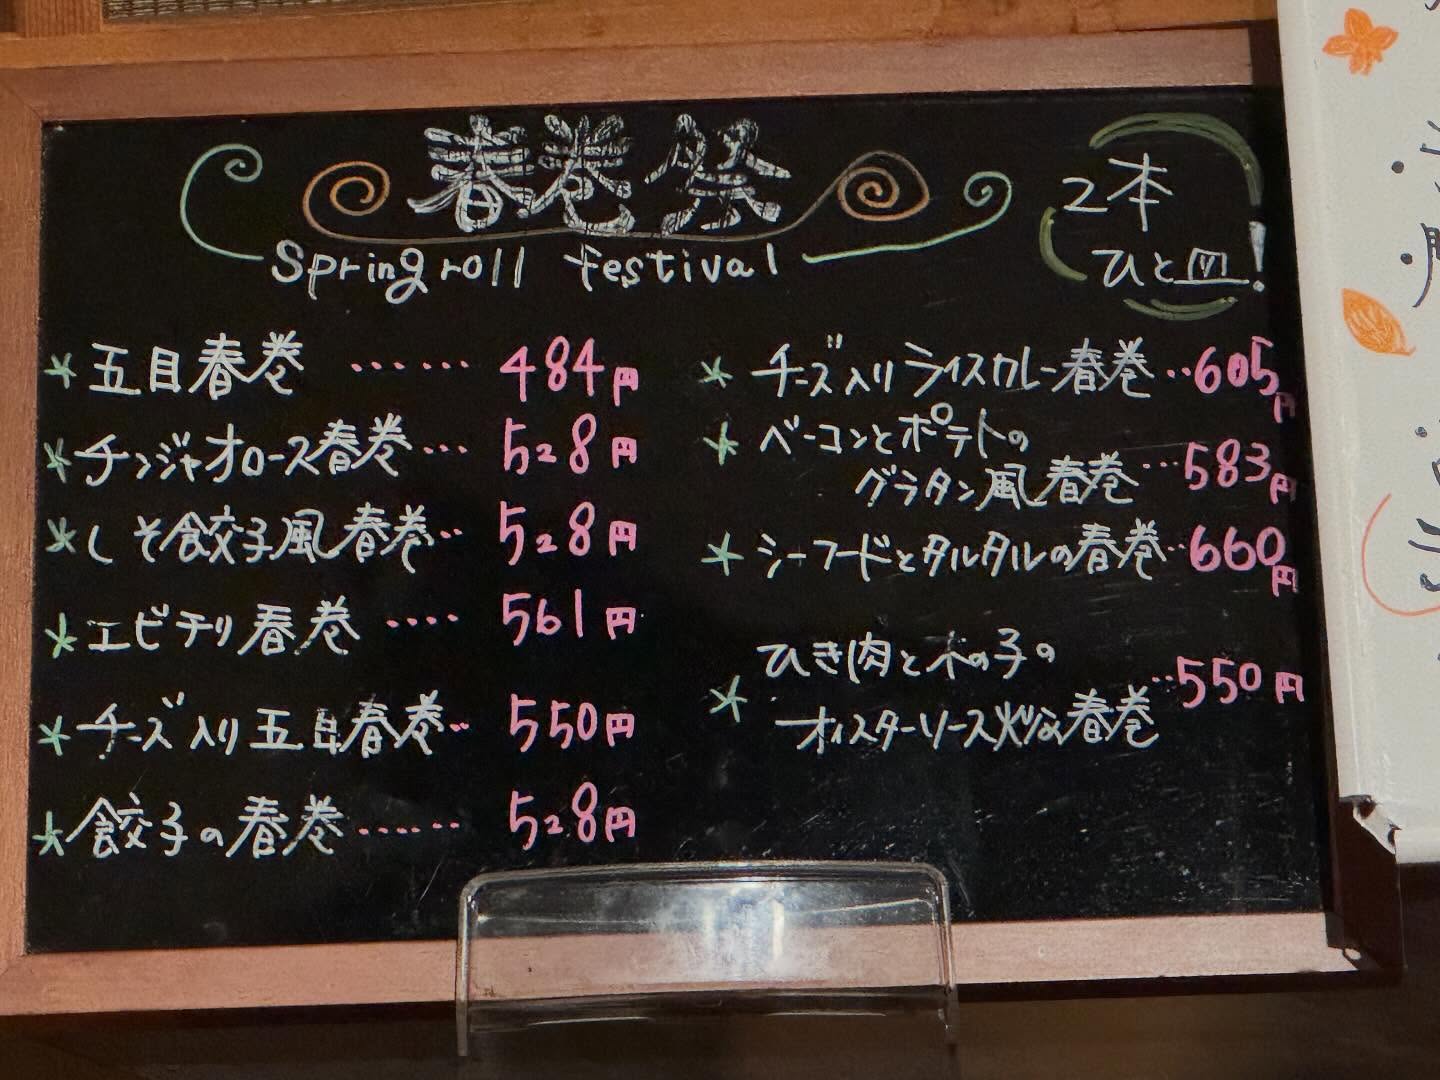 春巻祭
Spring roll festival
2本
ひと皿!
五目春巻 ・・・・・・ 484円
チンジャオロース春巻 ・・・ 528円
しそ餃子風春巻 ・・ 528円
エビチリ春巻 ・・・・ 561円
チーズ入り五目春巻 ・・ 550円
餃子の春巻 ・・・・・・ 528円
チーズ入りライスカレー春巻 ・・ 605円
ベーコンとポテトの
グラタン風春巻 ・・・ 583円
シーフードとタルタルの春巻 ・・ 660円
ひき肉と木の子の
オイスターソース炒め春巻 ・・ 550円